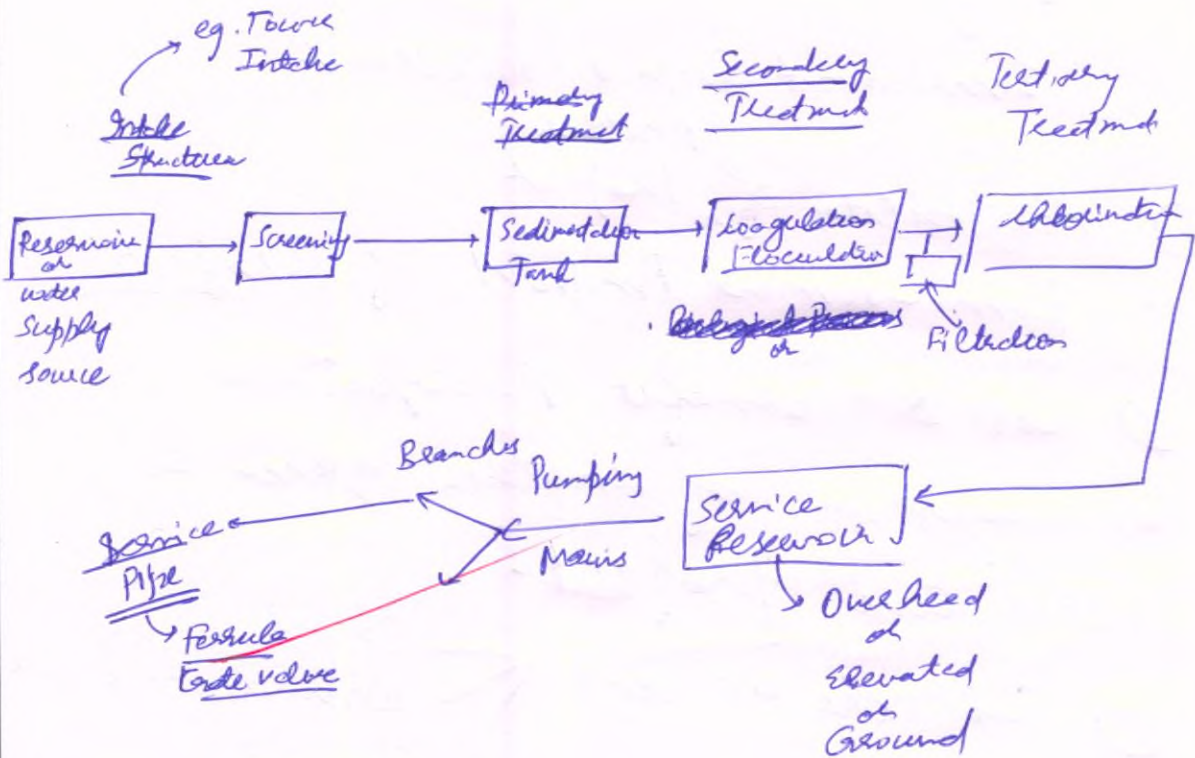 eg. Tower
Intake
Intake
Structure
Primary
Treatment
Secondary
Treatment
Tertiary
Treatment
Reservoir
or
water
supply
source
Screening
Sedimentation
Tank
Coagulation
Flocculation
Chlorination
or
Filtration
Branches
Pumping
Mains
Service
Reservoir
Overhead
or
Elevated
or
Ground
Service
Pipe
Ferrule
Gate valve